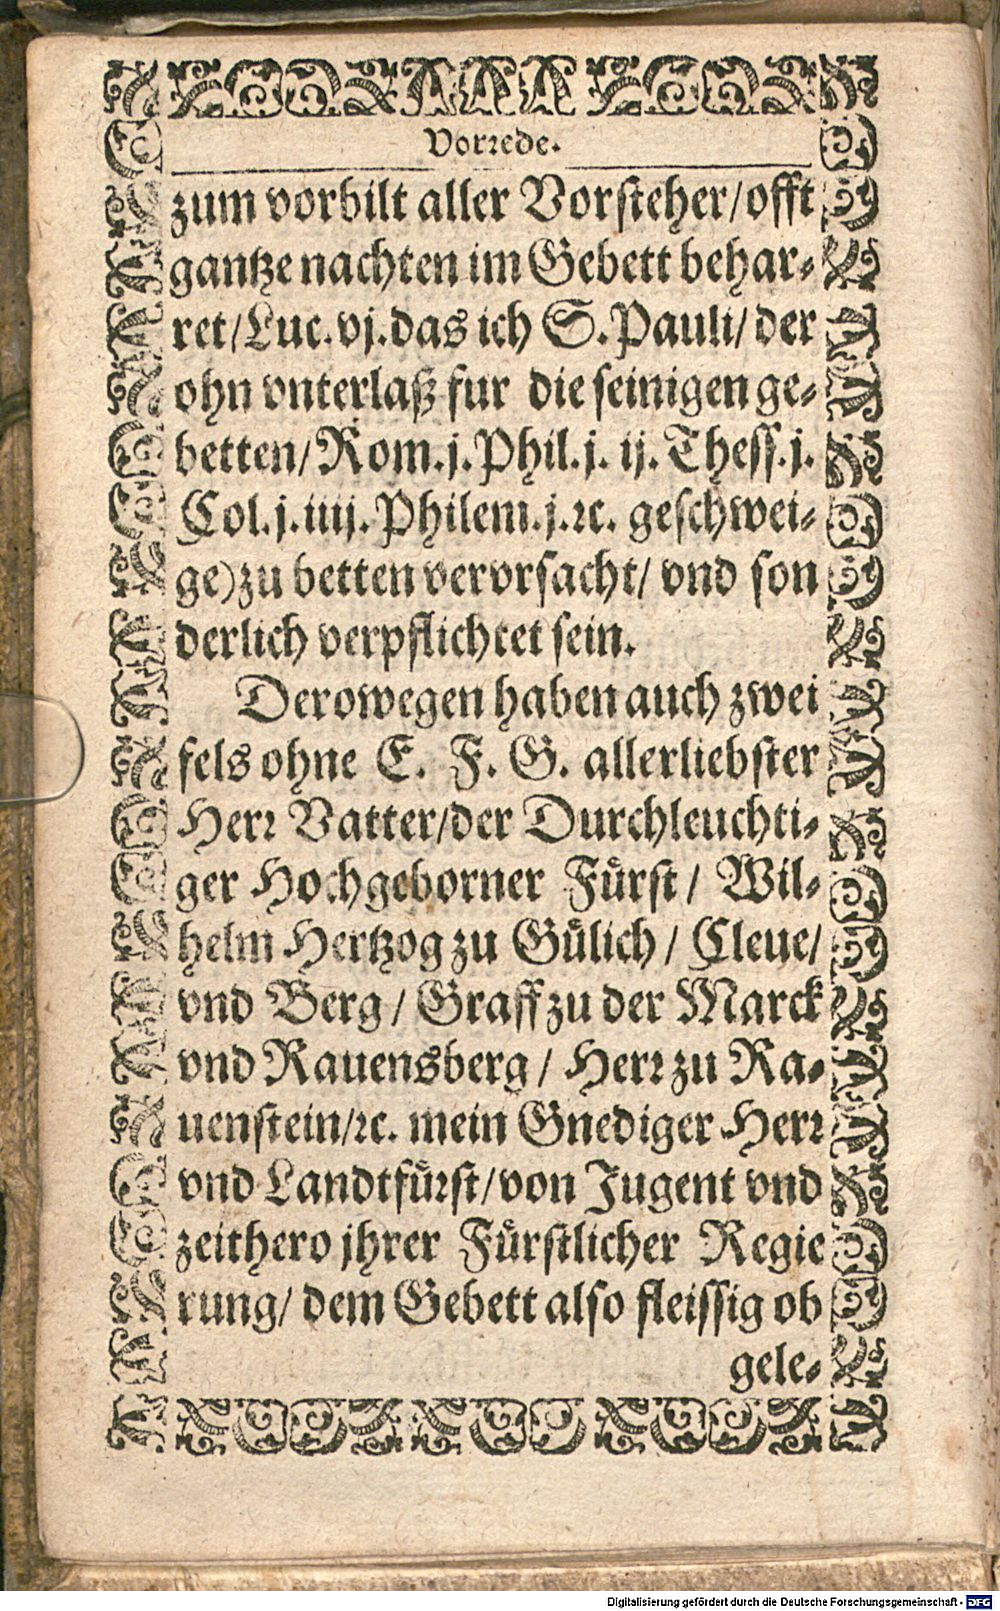 Vorrede.
zum vorbilt aller Vorsteher/offt
gantze nachten im Gebett behar⸗
ret/Luc.vj.das ich S.Pauli/ der
ohn vnterlaß fur die seinigen ge⸗
betten/Rom.j.Phil.j. ij.Thess.j.
Col.j.iiij.Philem.j.ꝛc. geschwei⸗
ge)zu betten vervrsacht/ vnd son
derlich verpflichtet sein.
Derowegen haben auch zwei
fels ohne E. F. G. allerliebster
Herr Vatter/der Durchleuchti⸗
ger Hochgeborner Fürst/ Wil⸗
helm Hertzog zu Gülich/ Cleue/
vnd Berg/ Graff zu der Marck
vnd Rauensberg/ Herr zu Ra⸗
uenstein/ꝛc. mein Gnediger Herr
vnd Landtfürst/von Jugent vnd
zeithero jhrer Fürstlicher Regie
rung/ dem Gebett also fleissig ob
gele⸗
Digitalisierung gefördert durch die Deutsche Forschungsgemeinschaft - DFG